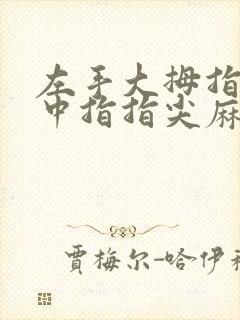 左手大拇指
中指指尖麻
賈梅尔-哈伊